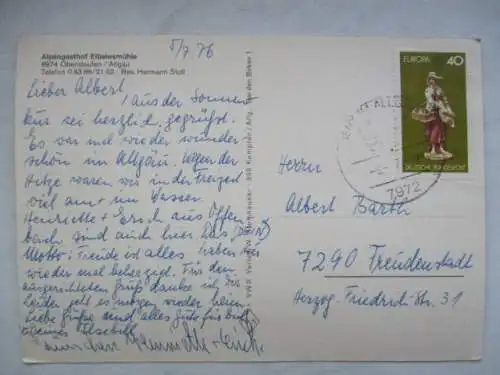 Alpengasthof Eibelesmühle
8974 Oberstaufen / Allgäu
Telefon 0 83 86/21 52 Bes. Hermann Stoll
5/7 76
Lieber Albert,
aus der Sonnen
kur sei herzlich gegrüßt.
Es war mal wieder wunder
schön im Allgäu. Wegen der
Hitze waren wir in der Freizeit
viel am + im Wasser.
Henriette + Erich aus Offen
bach sind auch hier. Das
Motto: Freude ist alles haben wir
wieder mal beherzigt. Für den
ausgerichteten Gruß danke ich Dir
leider geht es morgen wieder heim.
Liebe Grüße und alles Gute für
Henriette + Erich
EUROPA 40
DEUTSCHE BUNDESPOST
7972
Herrn
Albert Barth
7290 Freudenstadt
Herzog-Friedrich-Str. 31